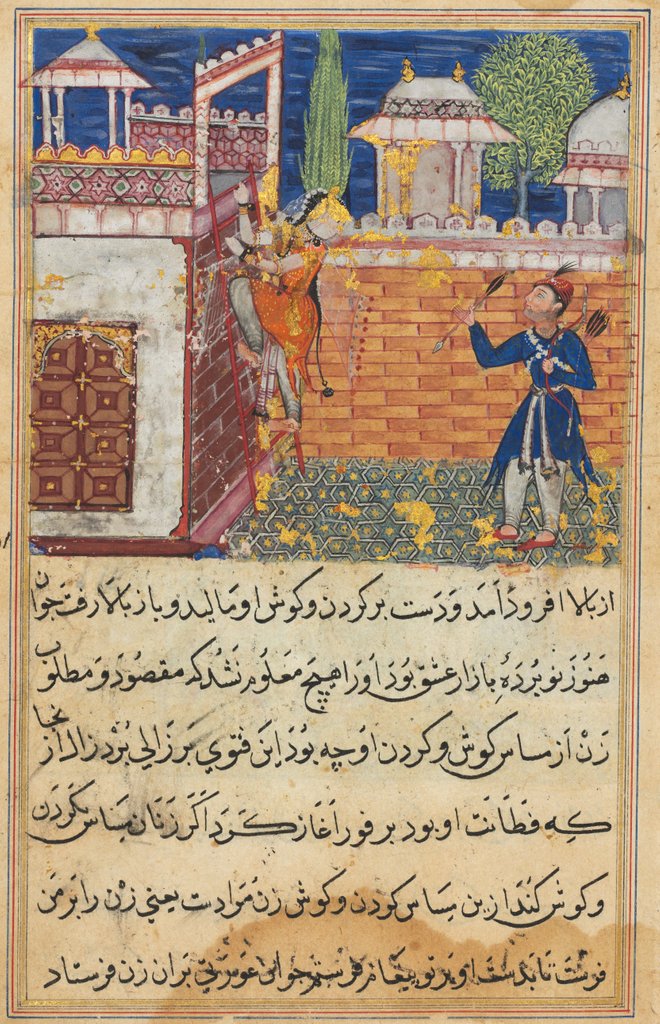 از بالا فرود آمد و دست بر کردن و کوش او مالید و باز بالا رفت جوان
هنوز نو بردهٔ بازار عشق بود او را هیچ معلوم نشد که مقصود و مطلوب
زن از مساس کوش و کردن او چه بود این فتوی بر زالی برد زال از آنجا
که فطانت او بود بر فور آغاز کرد اکر زنان مساس بکردن
و کوش کنند ازین مساس کردن و کوش زن مرادست یعنی زن را بر من
فرست تا بدست او بر تو پیغام فرستم جوان عورتی بران زن فرستاد